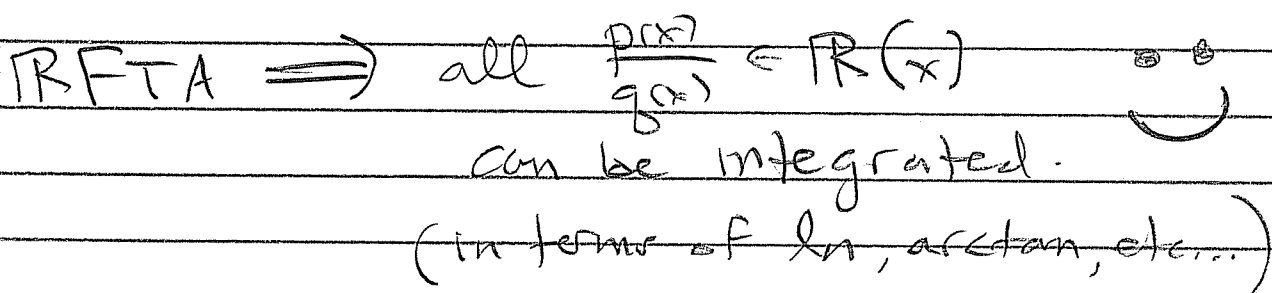 ℝFTA ⟹ all p(x)/q(x) ∈ ℝ(x)
can be integrated.
(in terms of ln, arctan, etc...)